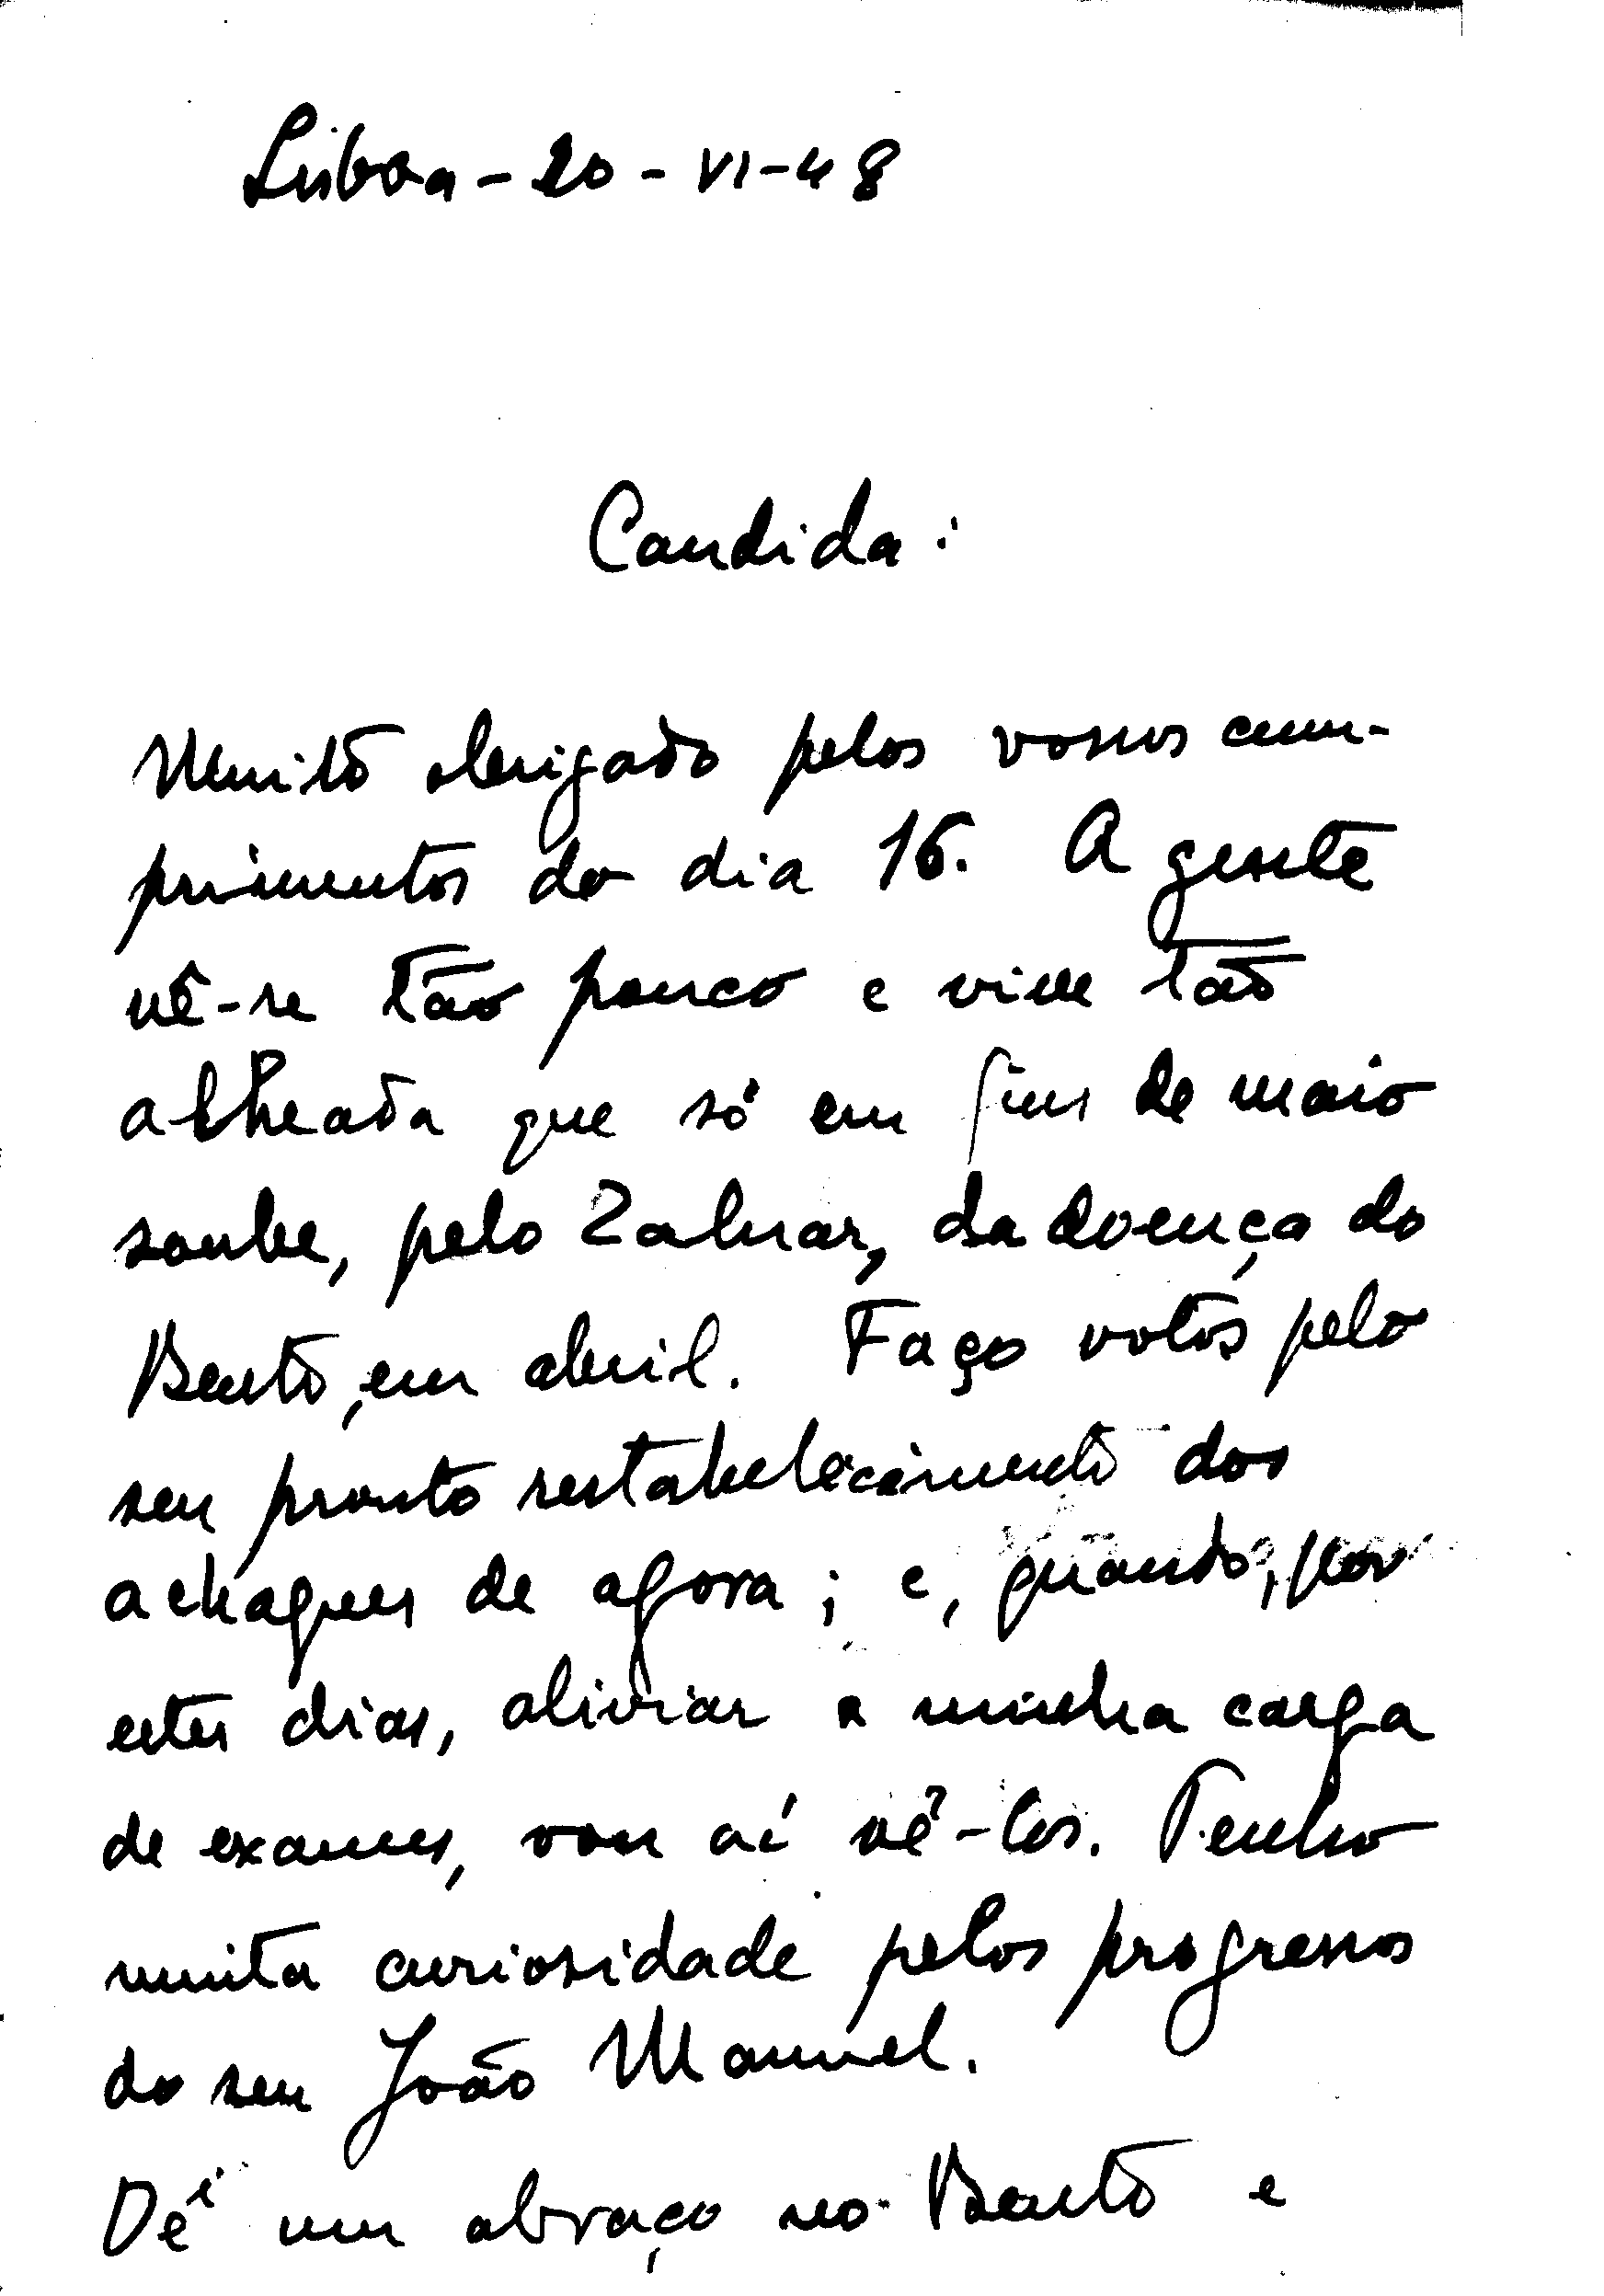 Lisboa - 20 - VI - 48
Candida:
Muito obrigado pelos vossos cum-
primentos do dia 16. A gente
vê-se tão pouco e vive tão
alheada que só em fins de maio
soube, pelo Zaluar, da doença do
Bento, em abril. Faço votos pelo
seu pronto restabelecimento dos
achaques de agora; e, quando, por
estes dias, aliviar a minha carga
de exames, vou aí vê-los. Tenho
muita curiosidade pelos progressos
do seu João Manuel.
Dê um abraço no Bento e